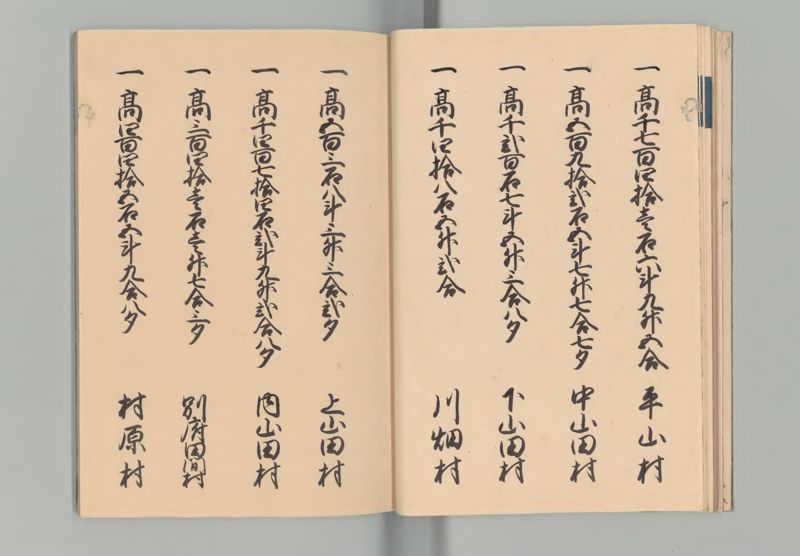 一 高千七百四拾壱石六斗九升五合 平山村
一 高五百九拾弐石五斗七升七合七夕 中山田村
一 高千弐百石七斗五升三合八夕 下山田村
一 高千四拾八石五升弐合 川畑村
一 高五百三石八斗三升三合弐夕 上山田村
一 高千四百七拾四石弐斗九升弐合八夕 内山田村
一 高三百四拾壱石壱升七合三夕 別府田間村
一 高四百四拾五石五斗九合八夕 村原村